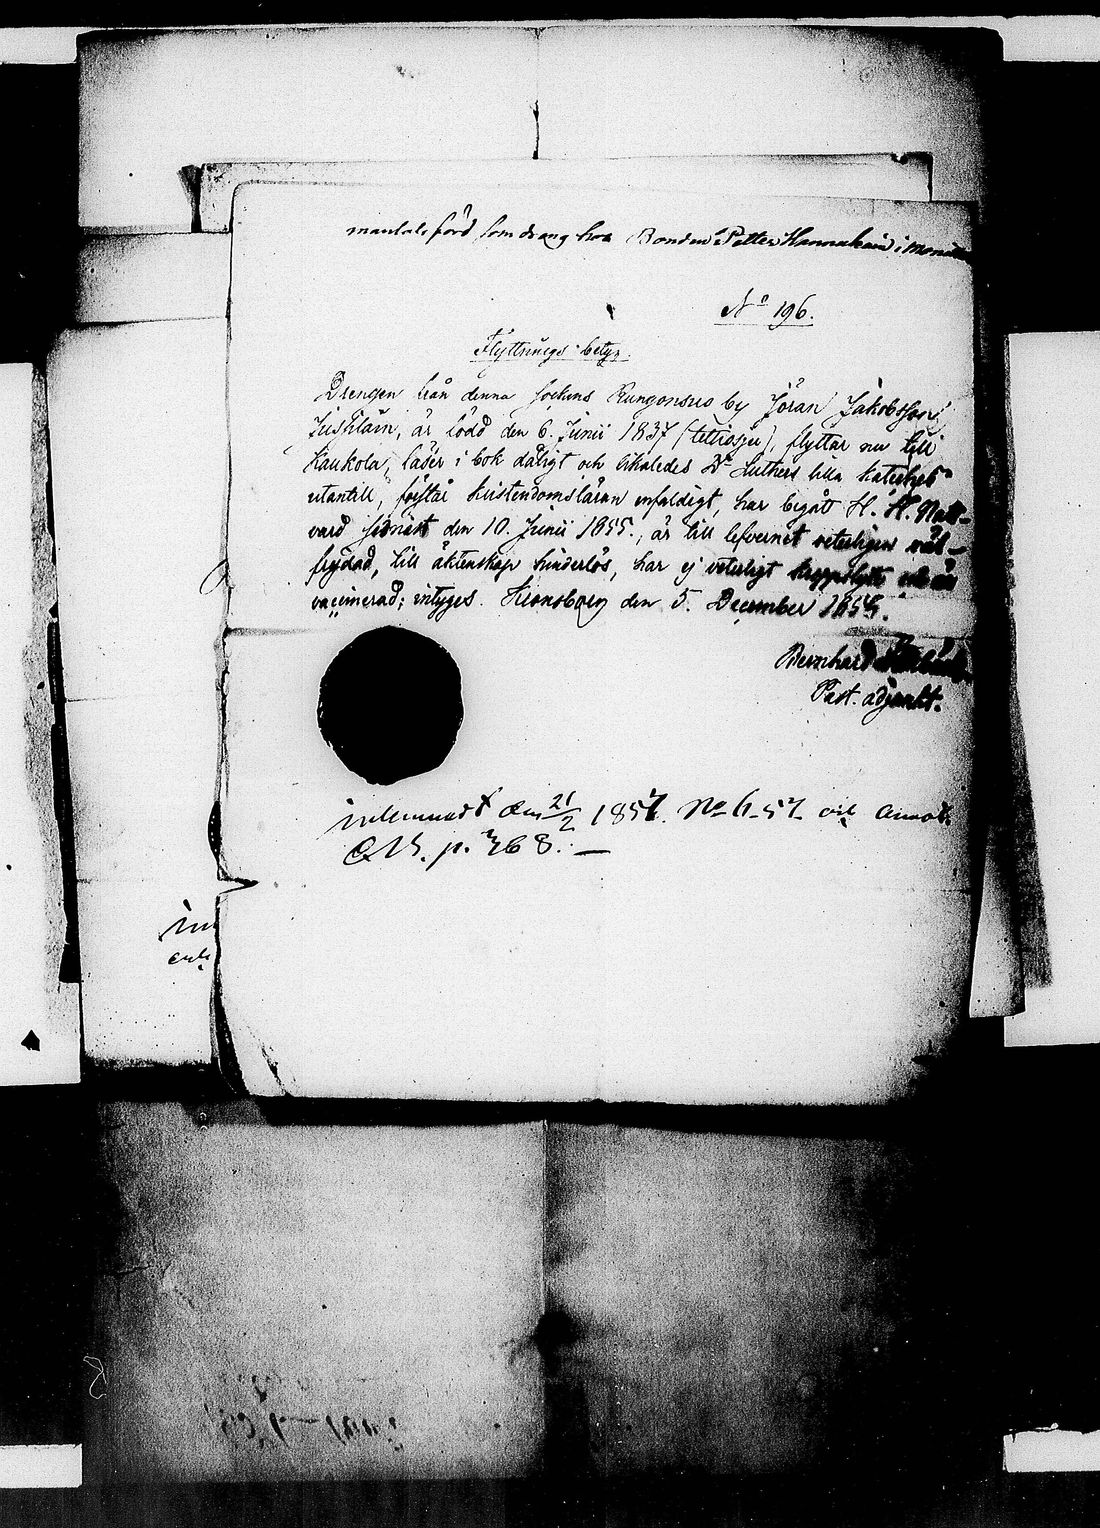 mantalsförd som dräng hos Bonden Petter Hannukain i
No 196.
Flyttnings-betyg.
Drengen från denna sockens Kungonsuo by Jöran Jakobsson
är född den 6. Junii 1837 (trettiosju), flyttar nu till
Kaukola, läser i bok dåligt och likaledes Dr Luthers lilla kateches
utantill, förstår kristendomsläran enfaldigt, har begått H. H. Natt-
vard senast den 10. Junii 1855., är till lefvernet veterligen väl-
frejdad, till äktenskap hinderlös, har ej veterligt kroppslyte och är
vaccinerad; intyges. Kronoborg den 5. December 1855.
Bernhard
Past. adjunkt.
inlemnadt den 21/2 1857. No 6-57 och annot.
p. 768. —
in
och